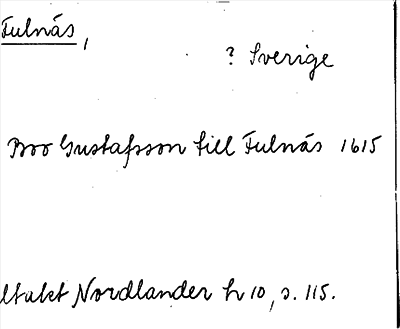 Fulnás,
? Sverige
Boo Gustafsson till Fulnás 1615
Nordlander h 10, s. 115.